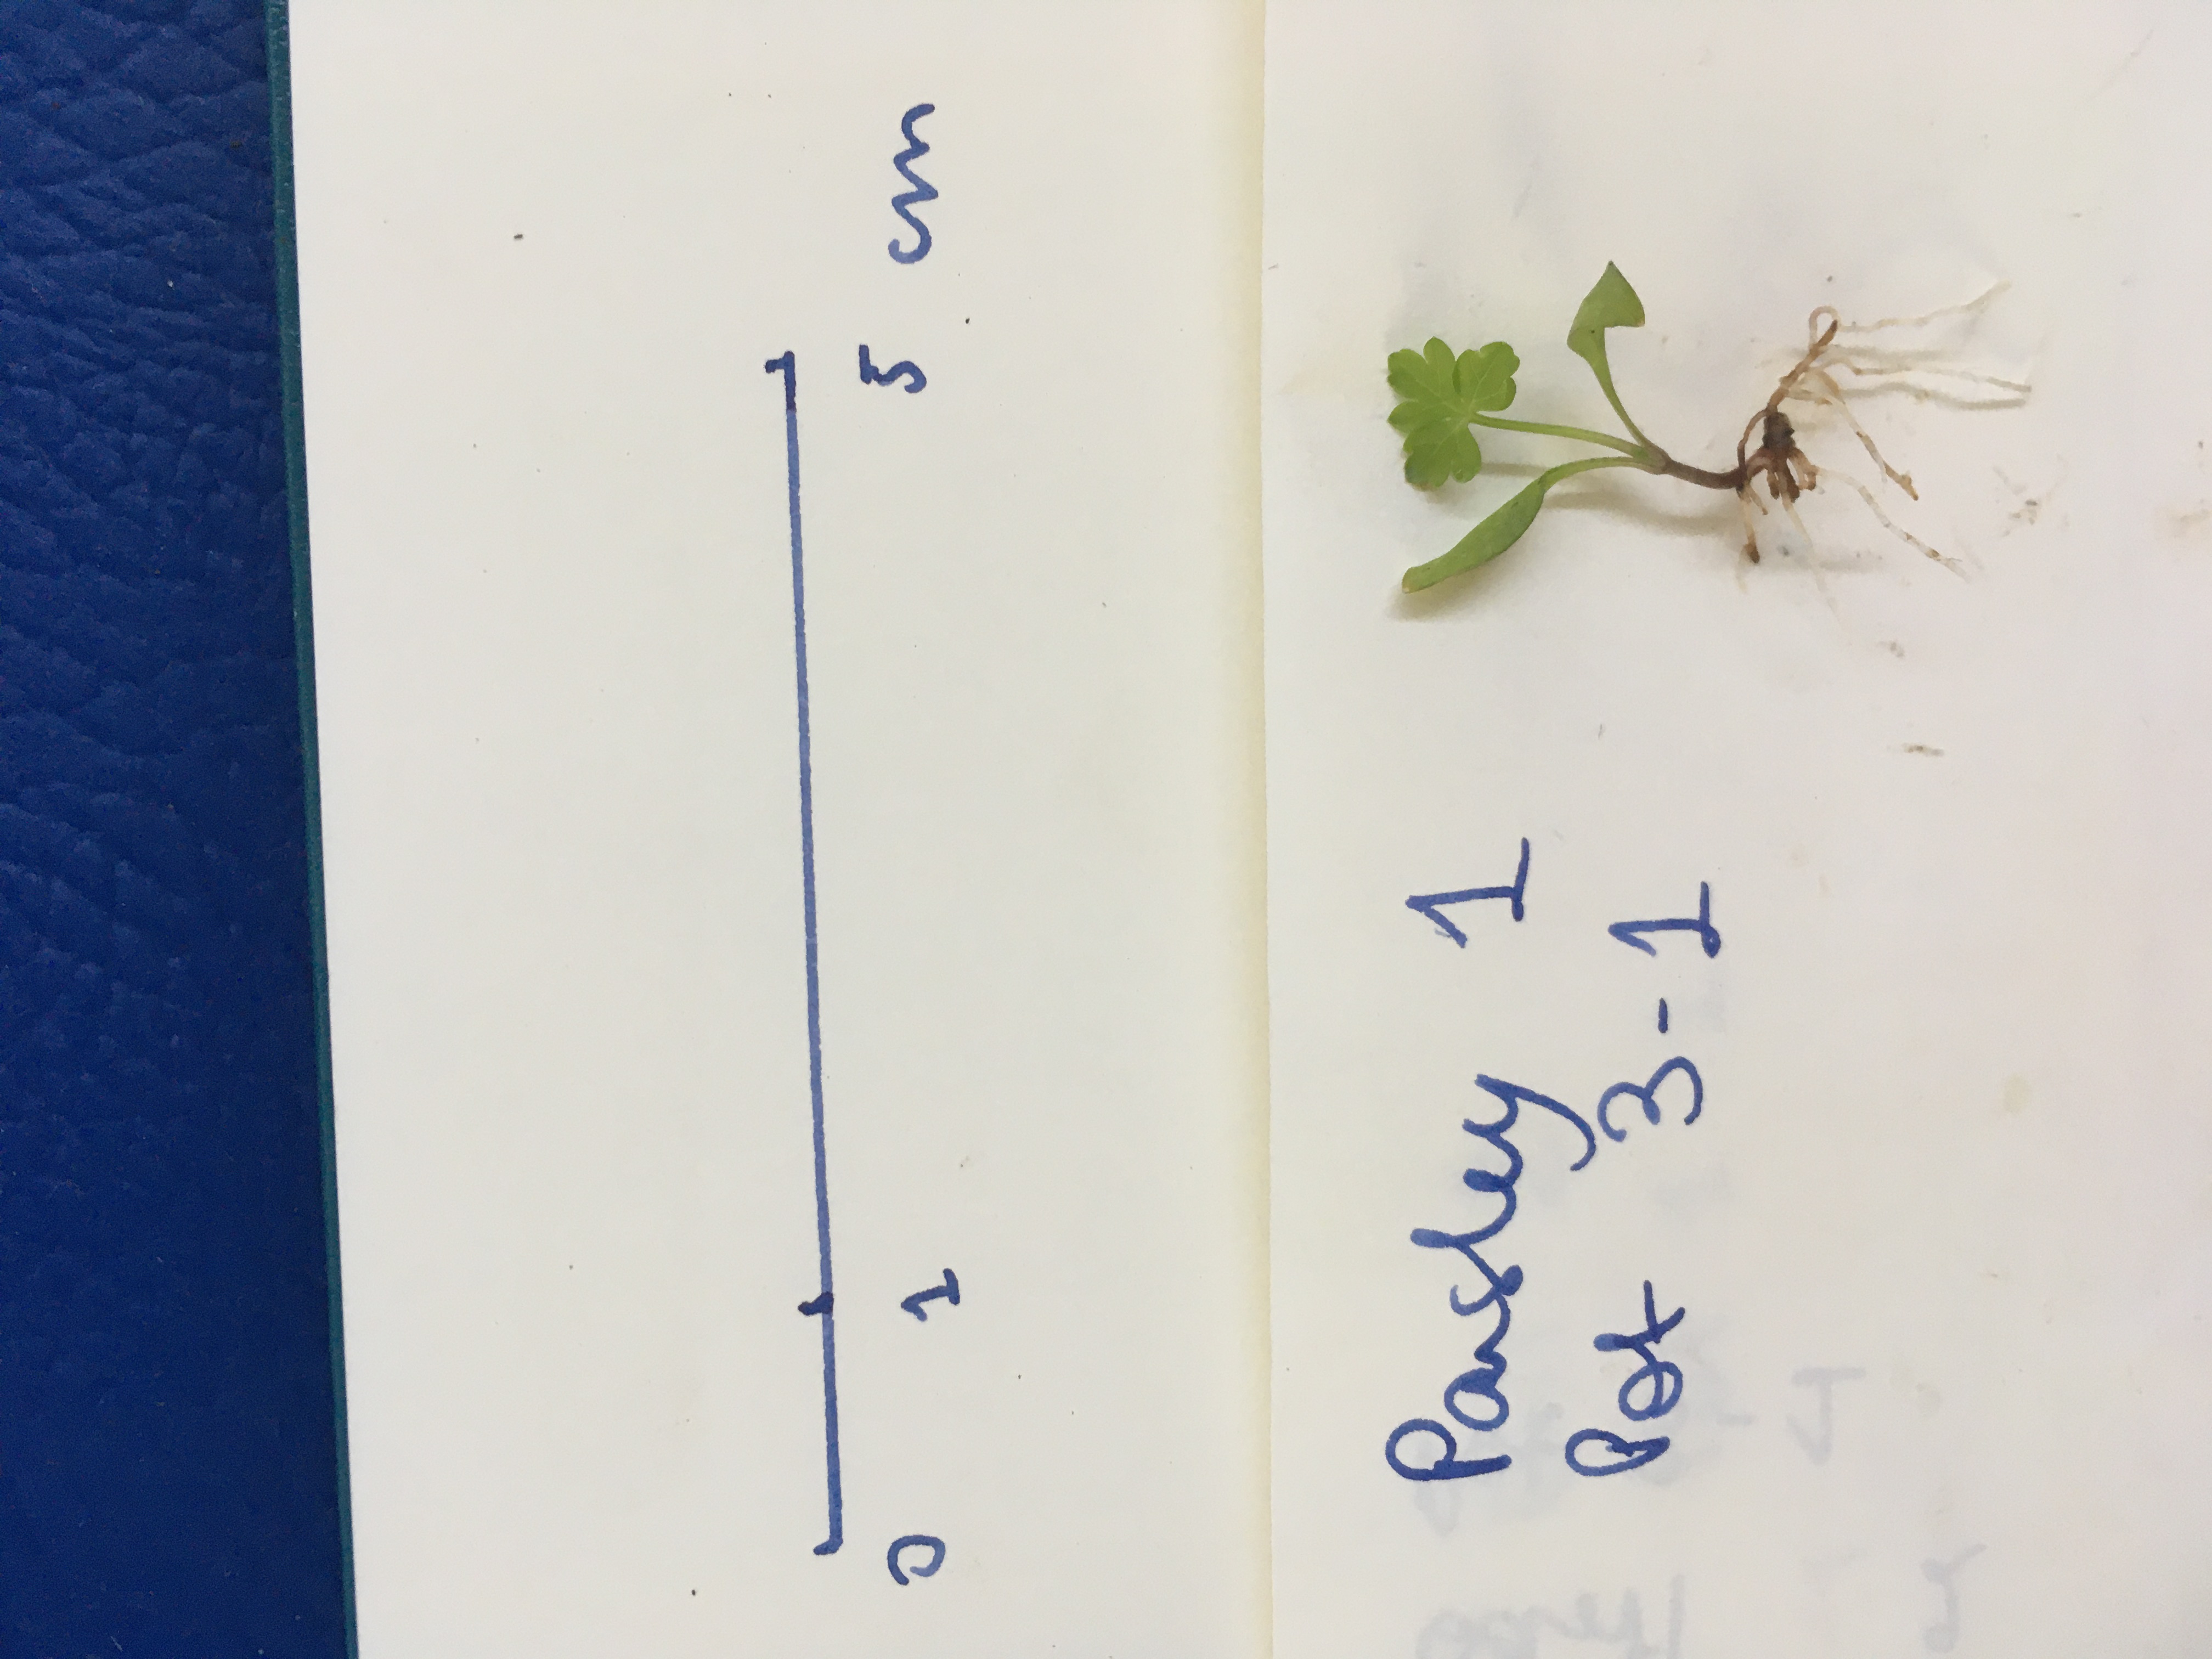 0 1 5 cm
Parsley 1
Pot 3-1